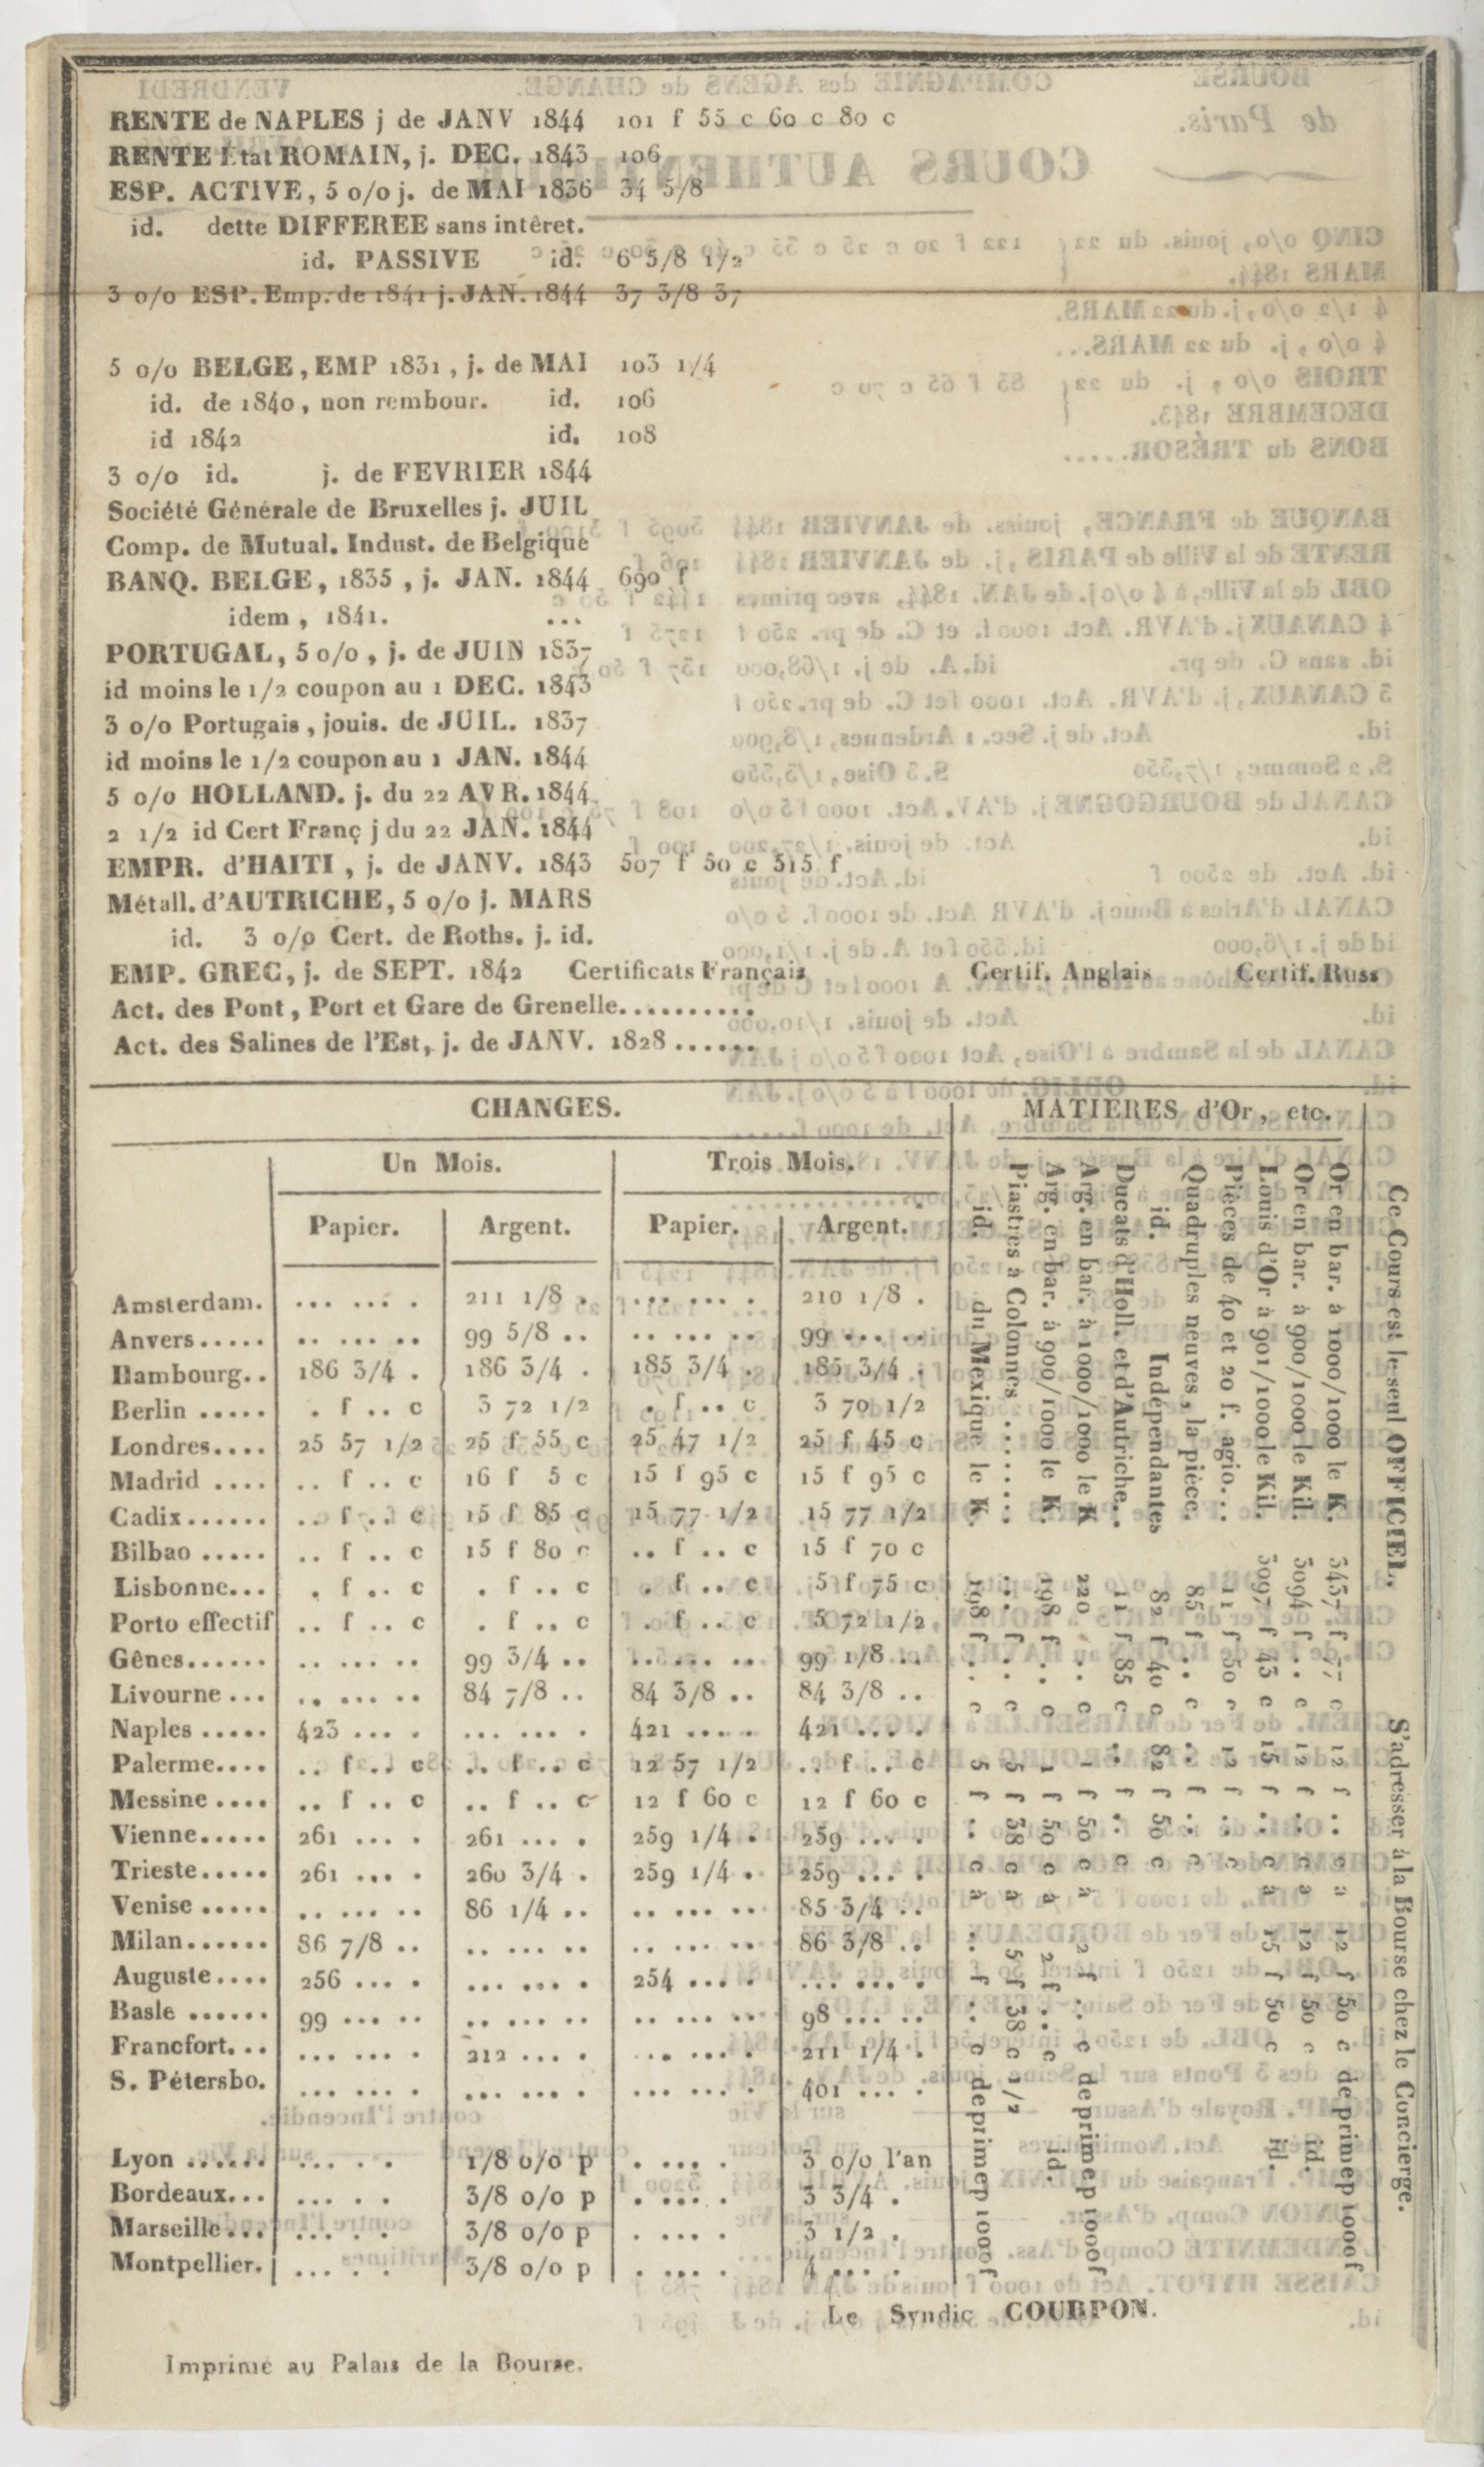 RENTE de NAPLES j de JANV 1844 101 f 55 c 60 c 80 c
RENTE Etat ROMAIN, j. DEC. 1843 106
ESP. ACTIVE, 5 o/o j. de MAI 1836 34 5/8
id. dette DIFFEREE sans intêret.
id. PASSIVE id. 6 5/8 1/2
3 o/o ESP. Emp. de 1841 j. JAN. 1844 37 3/8 37
5 o/o BELGE, EMP 1831, j. de MAI 103 1/4
id. de 1840, non rembour. id. 106
id 1842 id. 108
3 o/o id. j. de FEVRIER 1844
Société Générale de Bruxelles j. JUIL
Comp. de Mutual. Indust. de Belgique
BANQ. BELGE, 1835, j. JAN. 1844 690 f
idem, 1841. ...
PORTUGAL, 5 o/o, j. de JUIN 1837
id moins le 1/2 coupon au 1 DEC. 1843
3 o/o Portugais, jouis. de JUIL. 1837
id moins le 1/2 coupon au 1 JAN. 1844
5 o/o HOLLAND. j. du 22 AVR. 1844
2 1/2 id Cert Franç j du 22 JAN. 1844
EMPR. d'HAITI, j. de JANV. 1843 507 f 50 c 515 f
Métall. d'AUTRICHE, 5 o/o j. MARS
id. 3 o/o Cert. de Roths. j. id.
EMP. GREC, j. de SEPT. 1842 Certificats Français Certif. Anglais Certif. Russ
Act. des Pont, Port et Gare de Grenelle..........
Act. des Salines de l'Est, j. de JANV. 1828......
CHANGES.
Un Mois. Trois Mois.
Papier. Argent. Papier. Argent.
Amsterdam. ... ... . 211 1/8 . ... ... . 210 1/8 .
Anvers..... .. ... .. 99 5/8 .. .. ... .. 99 ... ..
Hambourg.. 186 3/4 . 186 3/4 . 185 3/4 . 185 3/4 .
Berlin ..... . f .. c 3 72 1/2 . f .. c 3 70 1/2
Londres.... 25 57 1/2 25 f 55 c 25 47 1/2 25 f 45 c
Madrid .... .. f .. c 16 f 5 c 15 f 95 c 15 f 95 c
Cadix...... .. f .. c 15 f 85 c 15 77 1/2 15 77 1/2
Bilbao ..... .. f .. c 15 f 80 c .. f .. c 15 f 70 c
Lisbonne... . f .. c . f .. c . f .. c 5 f 75 c
Porto effectif .. f .. c . f .. c . f .. c 5 72 1/2
Gênes...... .. ... .. 99 3/4 .. .. ... .. 99 1/8 ..
Livourne... .. ... .. 84 7/8 .. 84 3/8 .. 84 3/8 ..
Naples ..... 423 ... . ... ... . 421 ... . 421 ... .
Palerme.... .. f .. c .. f .. c 12 57 1/2 .. f .. c
Messine.... .. f .. c .. f .. c 12 f 60 c 12 f 60 c
Vienne..... 261 ... . 261 ... . 259 1/4 . 259 ... .
Trieste..... 261 ... . 260 3/4 . 259 1/4 . 259 ... .
Venise ..... .. ... .. 86 1/4 .. .. ... .. 85 3/4 ..
Milan...... 86 7/8 .. .. ... .. .. ... .. 86 3/8 ..
Auguste.... 256 ... . ... ... . 254 ... . ... ... .
Basle ...... 99 ... .. .. ... .. .. ... .. 98 ... ..
Francfort... ... ... . 212 ... . ... ... . 211 1/4 .
S. Pétersbo. ... ... . ... ... . ... ... . 401 ... .
Lyon ...... ... . . 1/8 o/o p . ... . 3 o/o l'an
Bordeaux... ... . . 3/8 o/o p . ... . 3 3/4 .
Marseille... ... . . 3/8 o/o p . ... . 3 1/2 .
Montpellier. ... . . 3/8 o/o p . ... . 4 ... .
MATIERES d'Or, etc.
Or en bar. à 1000/1000 le K. 3437 f 77 c 12 f .. c a 12 f 50 c de prime p 1000f
Or en bar. à 900/1000 le Kil. 3094 f .. c 12 f .. c a 12 f 50 c id.
Louis d'Or à 901/1000 le Kil. 3097 f 43 c 15 f .. c à 15 f 50 c id.
Pièces de 40 et 20 f. agio... 11 f 50 c 12 f .. c
Quadruples neuves, la pièce. 85 f .. c .. f .. c
id. Indépendantes 82 f 40 c 82 f 50 c
Ducats d'Holl. et d'Autriche.. 11 f 85 c .. f .. c
Arg. en bar. à 1000/1000 le K 220 .. c 1 f 50 c à 2 f .. c de prime p 1000f
Arg. en bar. à 900/1000 le K. 198 f .. c 1 f 50 c à 2 f .. c id.
Piastres à Colonnes ...... .. f .. c 5 f 38 c à 5 f 38 c 1/2
id. du Mexique le K. 198 f .. c 5 f .. c à .. f .. c de prime p 1000f
Ce Cours est le seul OFFICIEL. S'adresser à la Bourse chez le Concierge.
Le Syndic COURPON.
Imprimé au Palais de la Bourse.